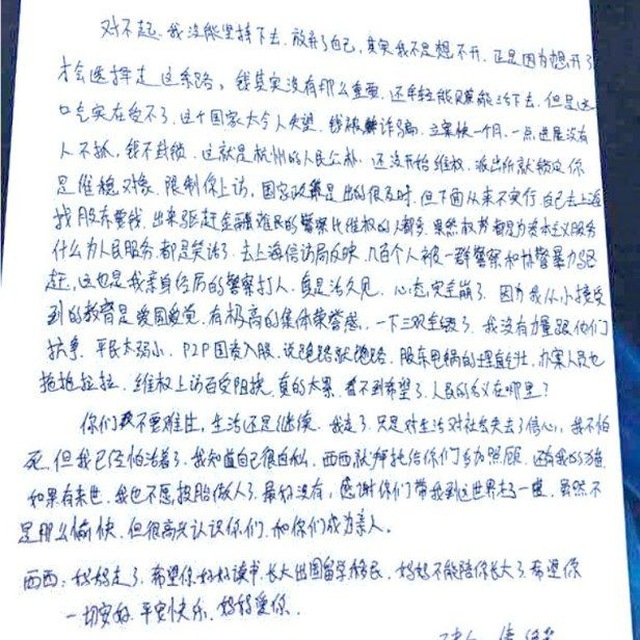 对不起,我没能坚持下去,放弃了自己,其实我不是想不开,正是因为想开了
才会选择走这条路,钱其实没有那么重要,还年轻能赚能活下去,但是这
口气实在受不了,这个国家太令人失望,钱被诈骗,立案快一个月,一点进展没有
人不抓,钱不封锁,这就是杭州的人民公仆,还没开始维权,派出所就锁定你
是维稳对象,限制你上访,国家政策是出的很及时,但下面从来不实行,自己去上海
找股东要钱,出来驱赶金融难民的警察比维权的人都多,果然权势都是为资本主义服务
什么为人民服务,都是笑话了,去上海信访局反映,几百个人被一群警察和协警暴力驱
赶,这也是我亲身经历的警察打人,真是活久见,心态完全崩了,因为我从小接受
到的教育是爱国爱党,有极高的集体荣誉感,一下三观全毁了,我没有力量跟他们
抗争,平民太弱小,P2P国资入股,说跑路就跑路,股东甩锅的理直气壮,办案人员也
拖拖拉拉,维权上访百受阻挠,真的太累,看不到希望了,人民的名义在哪里?
你们不要难过,生活还是继续,我走了,只是对生活对社会失去了信心,我不怕
死,但我已经怕活着了,我知道自己很自私,西西就拜托给你们多加照顾,还有我的
如果有来世,我也不愿投胎做人了,最好没有,感谢你们带我到这世界走一遭,虽然不
是那么愉快,但很高兴认识你们,和你们成为亲人。
西西:妈妈走了,希望你好好读书,长大出国留学移民,妈妈不能陪你长大了,希望你
一切安好,平安快乐,妈妈爱你。